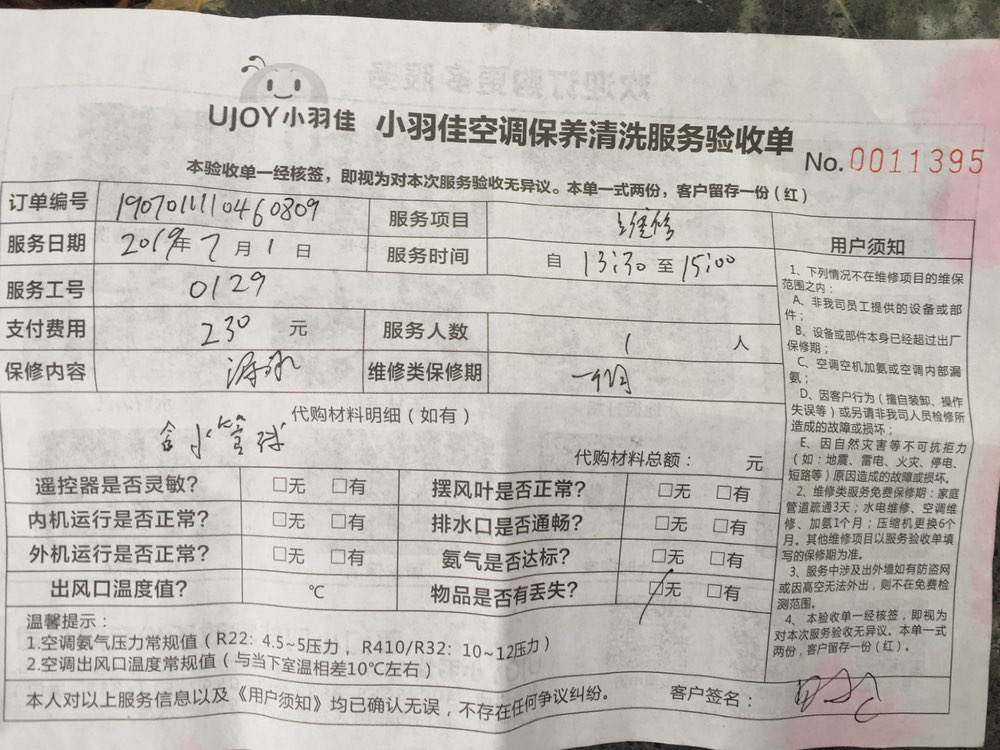 UJOY小羽佳 小羽佳空调保养清洗服务验收单
No.0011395
本验收单一经核签，即视为对本次服务验收无异议。本单一式两份，客户留存一份（红）
订单编号 1907011110460809 服务项目 维修
服务日期 2019年7月1日 服务时间 自 13:30 至 15:00
服务工号 0129
支付费用 230 元 服务人数 1 人
保修内容 维修类保修期 一个月
代购材料明细（如有）
代购材料总额： 元
遥控器是否灵敏？ □无 □有 摆风叶是否正常？ □无 □有
内机运行是否正常？ □无 □有 排水口是否通畅？ □无 □有
外机运行是否正常？ □无 □有 氨气是否达标？ □无 □有
出风口温度值？ ℃ 物品是否有丢失？ □无 □有
温馨提示：
1.空调氨气压力常规值（R22：4.5~5压力，R410/R32：10~12压力）
2.空调出风口温度常规值（与当下室温相差10℃左右）
本人对以上服务信息以及《用户须知》均已确认无误，不存在任何争议纠纷。 客户签名：
用户须知
1、下列情况不在维修项目的维保
范围之内：
A、非我司员工提供的设备或部
件；
B、设备或部件本身已经超过出厂
保修期；
C、空调空机加氨或空调内部漏
氨；
D、因客户行为（擅自装卸、操作
失误等）或另请非我司人员检修所
造成的故障或损坏；
E、因自然灾害等不可抗拒力
（如：地震、雷电、火灾、停电、
短路等）原因造成的故障或损坏。
2、维修类服务免费保修期：家庭
管道疏通3天；水电维修、空调维
修、加氨1个月；压缩机更换6个
月。其他维修项目以服务验收单填
写的保修期为准。
3、服务中涉及出外墙如有防盗网
或因高空无法外出，则不在免费检
测范围。
4、本验收单一经核签，即视为
对本次服务验收无异议。本单一式
两份，客户留存一份（红）。